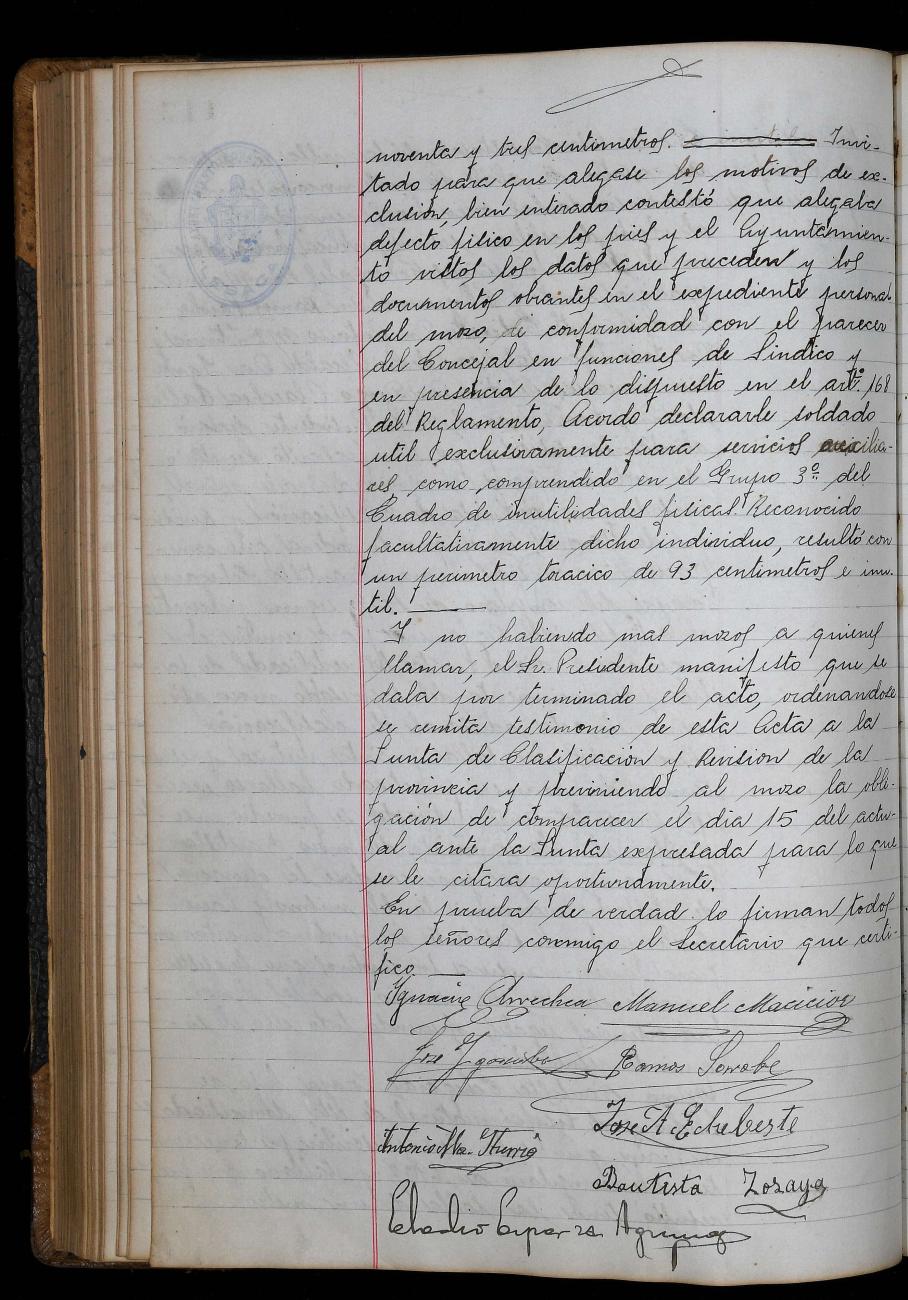 noventa y tres centimetros. Invi-
tado para que alegase los motivos de ex-
clusión, bien enterado contestó que alegaba
defecto fisico en los pies y el Ayuntamien-
to vistos los datos que preceden y los
documentos obrantes en el expediente personal
del mozo, de conformidad con el parecer
del Concejal en funciones de Sindico y
en presencia de lo dispuesto en el artº. 168
del Reglamento, Acordo declararle soldado
util exclusivamente para servicios auxilia-
res, como comprendido en el Grupo 3º del
Cuadro de inutilidades fisicas. Reconocido
facultativamente dicho individuo, resultó con
un perimetro toracico de 93 centimetros e inu-
til.
Y no habiendo mas mozos a quienes
llamar, el Sr. Presidente manifesto que se
daba por terminado el acto, ordenandose
se remita testimonio de esta Acta a la
Junta de Clasificación y Revision de la
provincia y previniendo al mozo la obli-
gación de comparecer el dia 15 del actu-
al ante la Junta expresada para lo que
se le citara oportunamente.
En prueba de verdad lo firman todos
los señores conmigo el Secretario que certi-
fico.
Ignacio Arrechea Manuel Macicior
José Ramos Sorrabe
José A. Echebeste
Antonio Mª. Iturria
Bautista Zozaya
Eladio Esparza